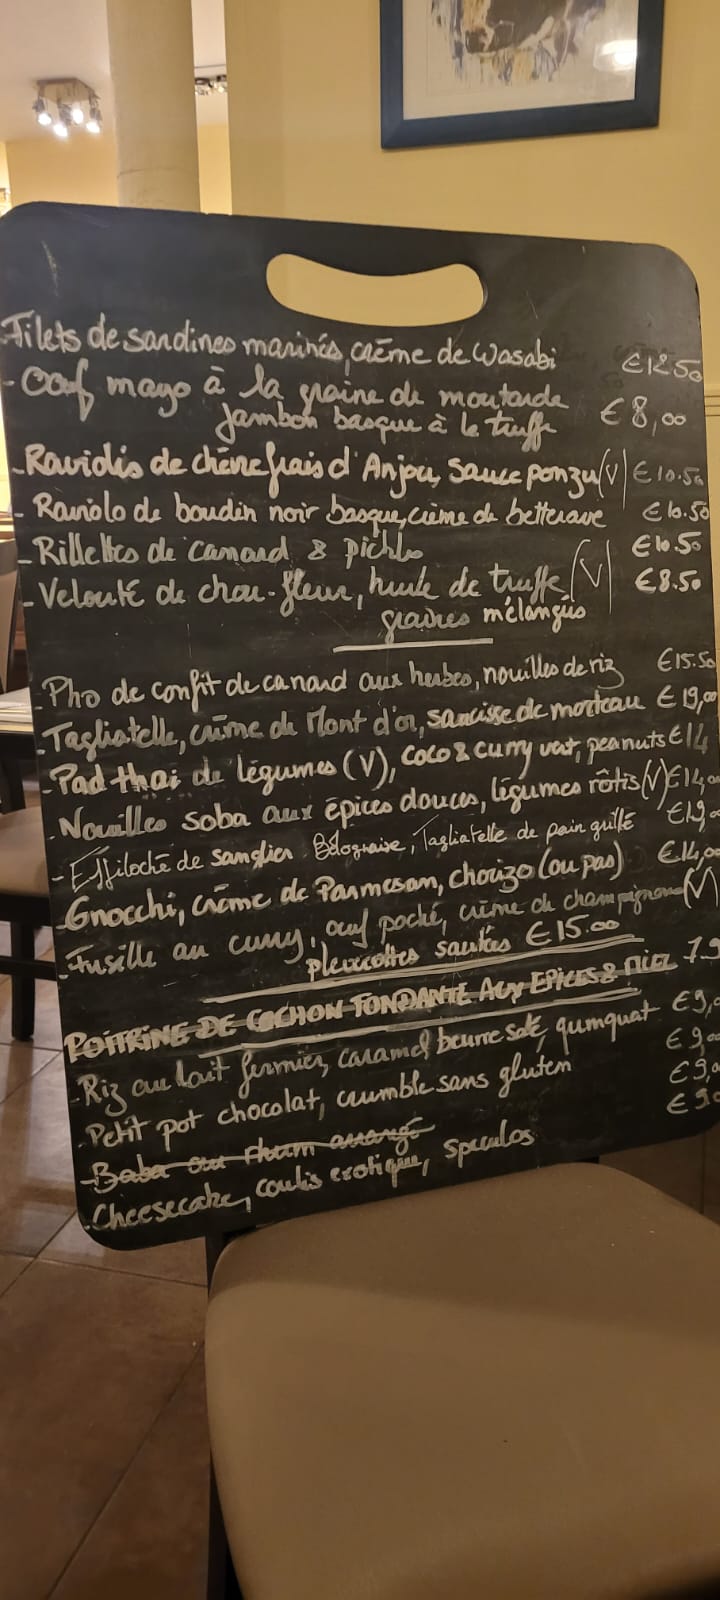 Filets de sardines marinés, crème de Wasabi €12.50
- Oeuf mayo à la graine de moutarde
jambon basque à la truffe €8,00
- Raviolis de chèvre frais d'Anjou, sauce ponzu (V) €10.50
- Raviolo de boudin noir basque, crème de betterave €10.50
- Rillettes de canard & pickles €10.50
- Velouté de chou-fleur, huile de truffe (V) €8.50
graines mélangées
- Pho de confit de canard aux herbes, nouilles de riz €15.50
- Tagliatelle, crème de Mont d'or, saucisse de morteau €19,00
- Pad thai de légumes (V), coco & curry vert, peanuts €14
- Nouilles soba aux épices douces, légumes rôtis (V) €14,00
- Effiloché de sanglier Bolognaise, Tagliatelle de pain grillé €19,00
Gnocchi, crème de Parmesan, chorizo (ou pas) €14,00
- Fusille au curry, oeuf poché, crème de champignons (V)
pleurottes sautées €15.00
POITRINE DE COCHON FONDANTE AUX EPICES & MIEL 7.9
- Riz au lait fermier, caramel beurre salé, qumquat €9,
- Petit pot chocolat, crumble sans gluten €9,00
- Baba au rhum arrangé €9,0
- Cheesecake, coulis exotique, speculos €9,0